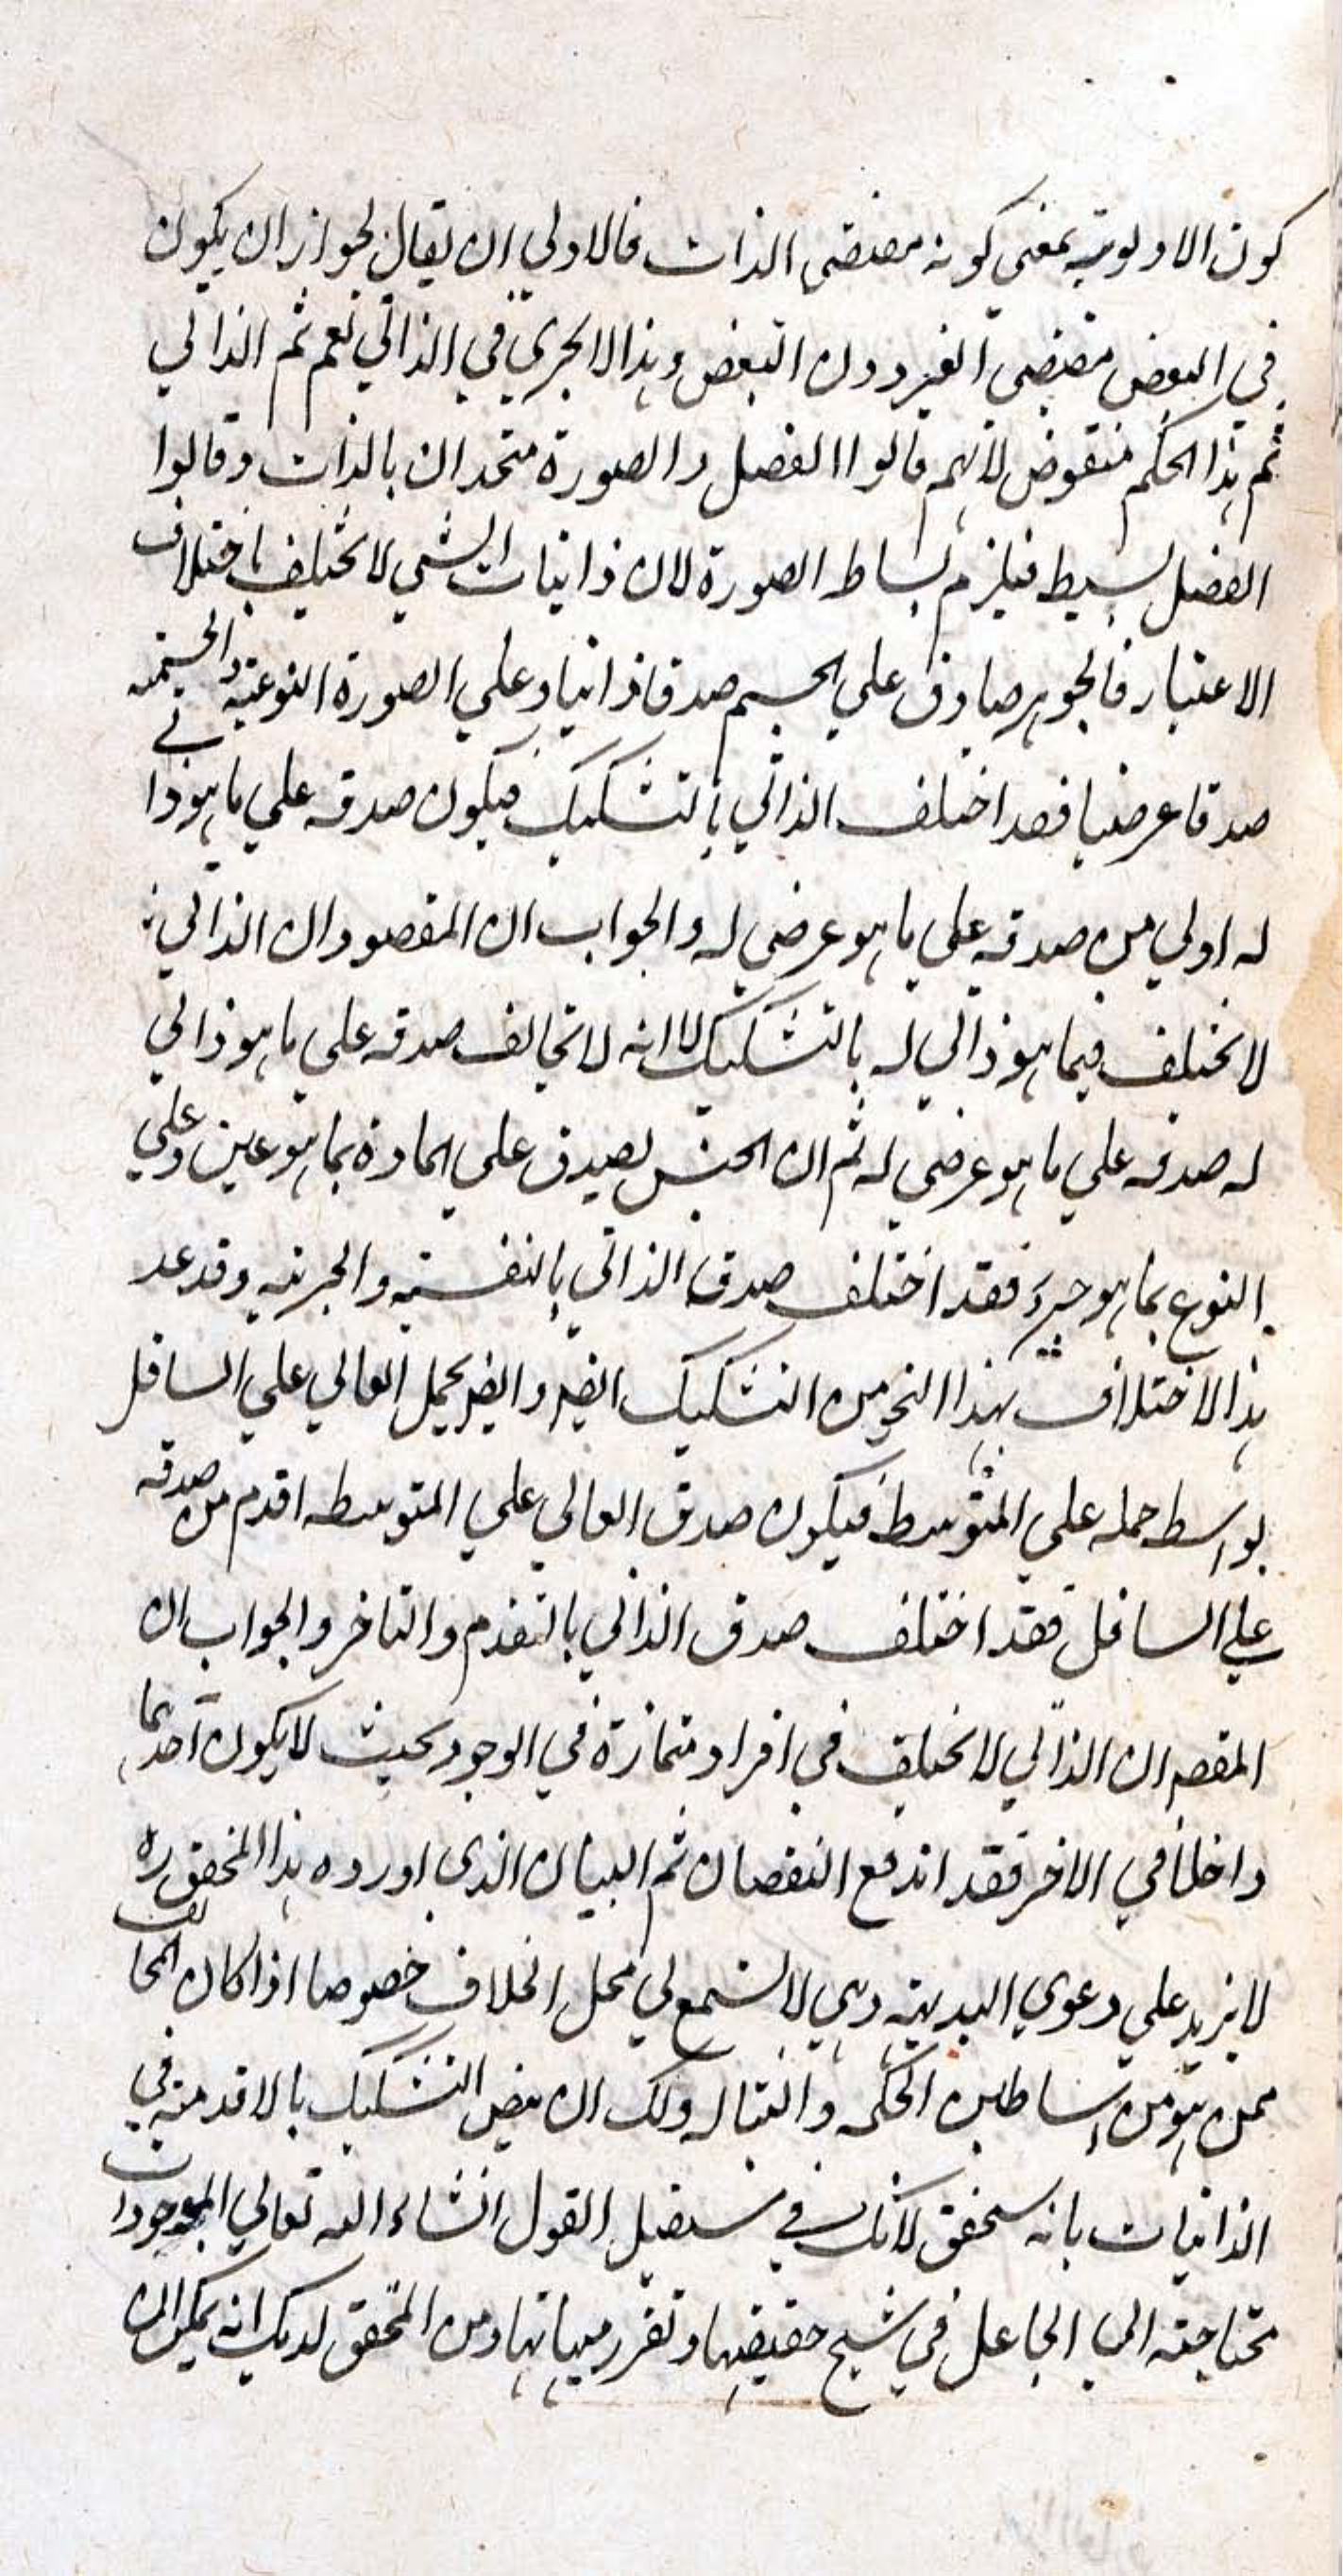 كون الاولوية بمعنى كونه مقتضى الذات فالاولي ان يقال لجواز ان يكون
في البعض مقتضى الغير دون البعض وهذا لا يجري في الذاتي نعم ثم الذاتي
ثم هذا الحكم منقوض لانهم قالوا الفصل والصورة متحدان بالذات وقالوا
الفصل بسيط فيلزم بساط الصورة لان ذاتيات الشي لا تختلف باختلاف
الاعتبار فالجوهر صادق علي الجسم صدقا ذاتيا وعلي الصورة النوعية والجسمية
صدقا عرضيا فقد اختلف الذاتي بالتشكيك فيكون صدقه علي ما هو ذاتي
له اولي من صدقه علي ما هو عرضي له والجواب ان المقصود ان الذاتي
لا يختلف فيما هو ذاتي له بالتشكيك لا انه لا تخالف صدقه علي ما هو ذاتي
له صدقه علي ما هو عرضي له ثم ان الجنس يصدق علي المادة بما هو عين وعلي
النوع بما هو جزء فقد اختلف صدق الذاتي بالنفسية والجزئية وقد عد
هذا الاختلاف بهذا النحو من التشكيك ايضا وايضا يحمل العالي علي السافل
بواسط حمله علي المتوسط فيكون صدق العالي علي المتوسط اقدم من صدقه
علي السافل فقد اختلف صدق الذاتي بالتقدم والتاخر والجواب ان
المقصم ان الذاتي لا يختلف في افراد متمازة في الوجود بحيث لا يكون احدهما
داخلا في الاخر فقد اندفع النقضان ثم البيان الذي اورده هذا المحقق ره
لا يزيد علي دعوي البديهة وهي لا تسمع في محل الخلاف خصوصا اذا كان المخالف
ممن هو من اساطين الحكمه والقباله ولك ان ينض التشكيك بالاقدمية في
الذاتيات بانه سيحقق لانك في مستقبل القول انشاء الله تعالي الموجودات
محتاجته الي الجاعل في شبح حقيقتها وتقرر مهياتها ومن المتحقق لديك انه يمكن ان